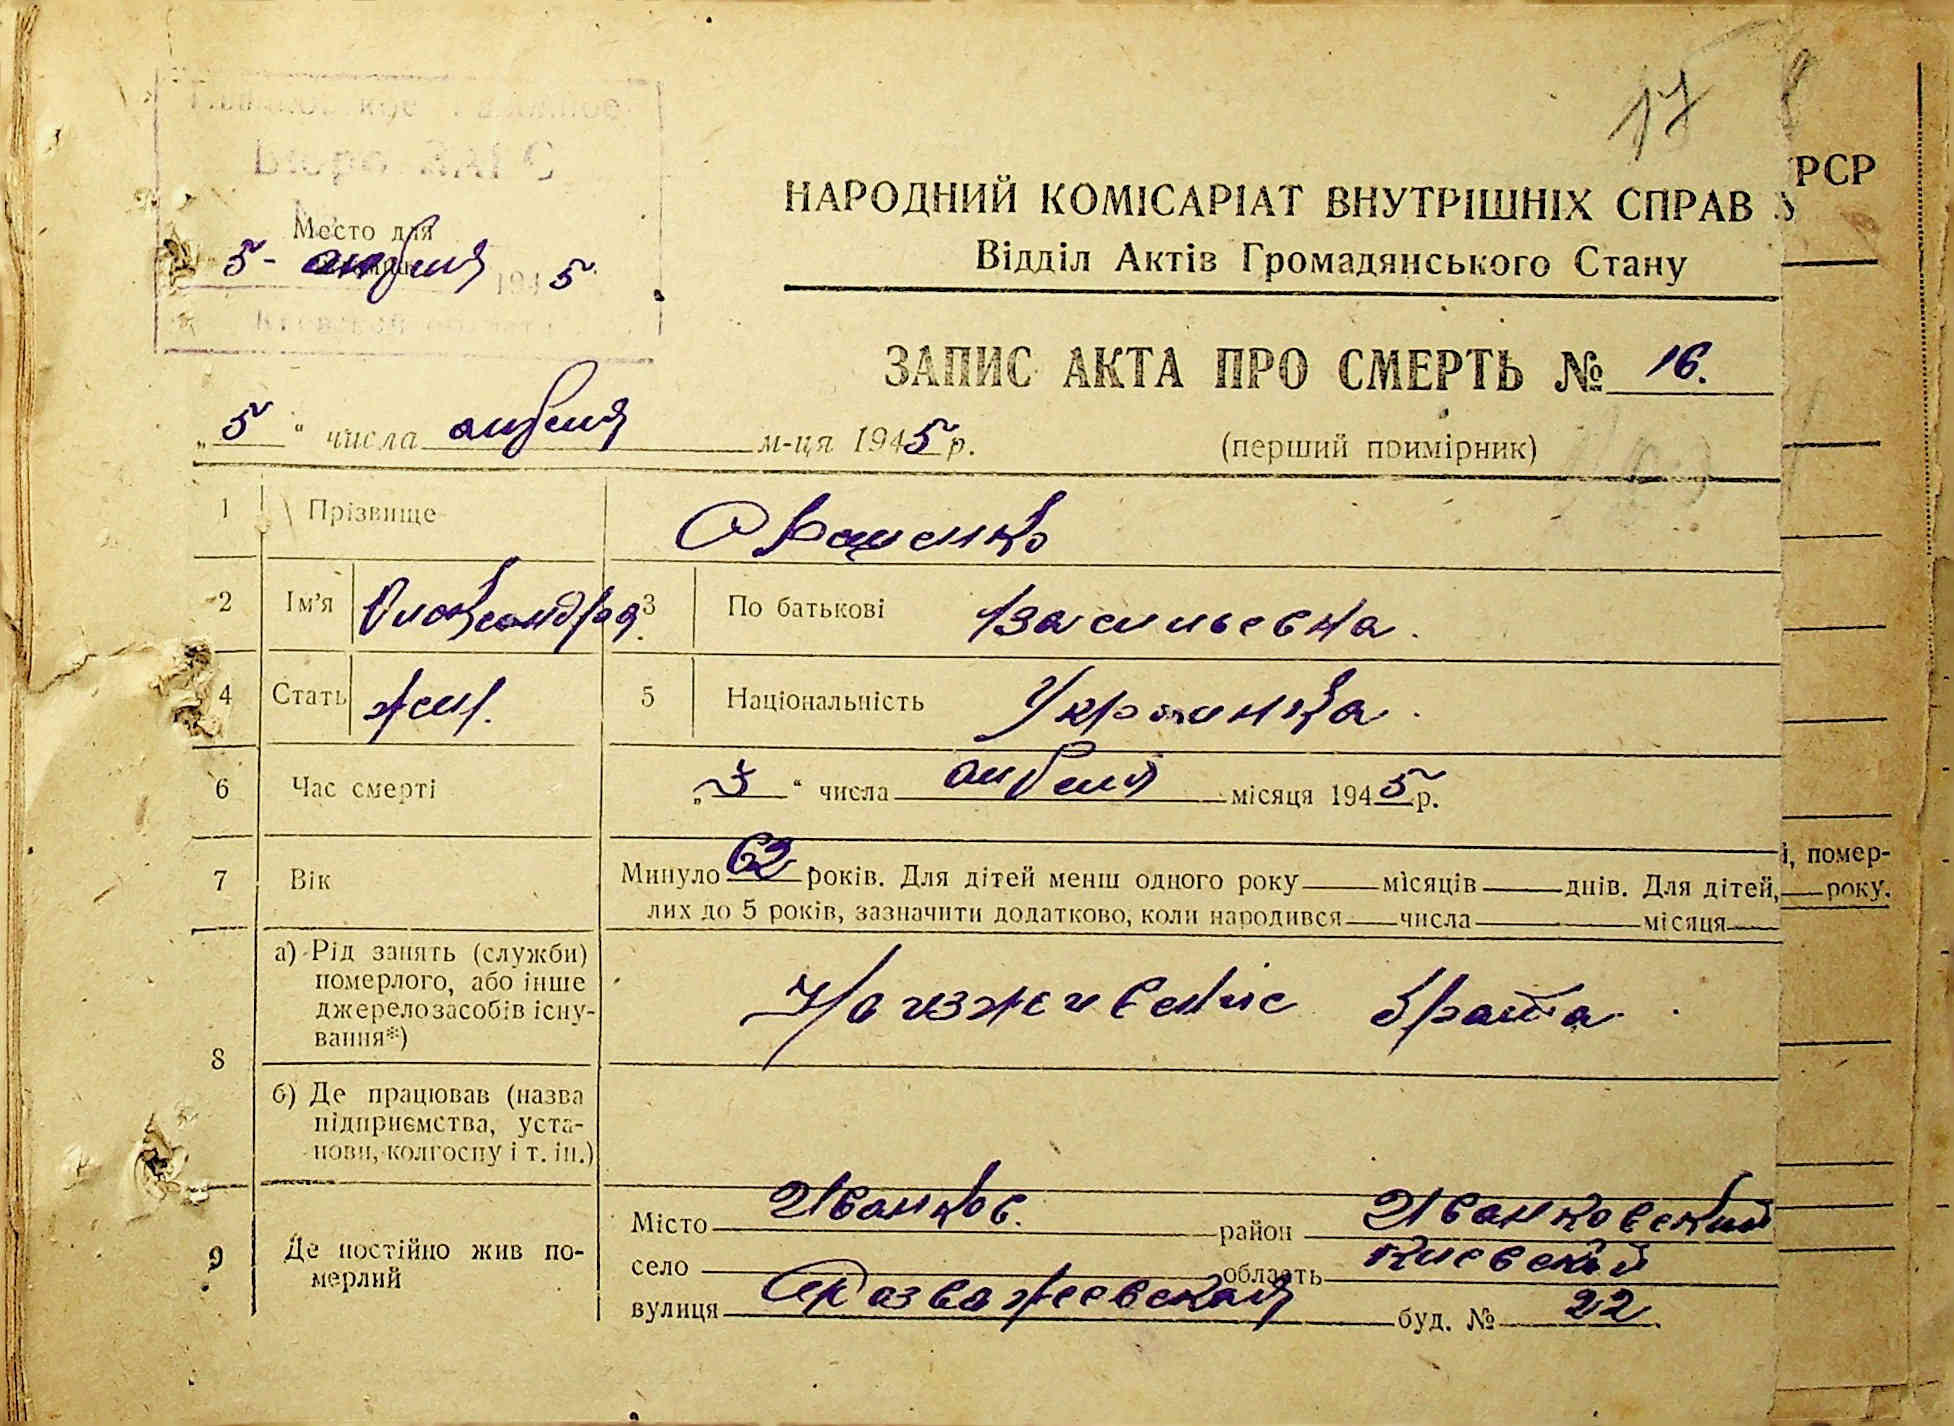 17
НАРОДНИЙ КОМІСАРІАТ ВНУТРІШНІХ СПРАВ У
РСР
Відділ Актів Громадянського Стану
Бюро ЗАГС
Место для
5- апреля 1945
ЗАПИС АКТА ПРО СМЕРТЬ № 16.
„5“ числа апреля м-ця 1945 р.
(перший примірник)
1 Прізвище
2 Ім'я Александра 3 По батькові Васильевна.
4 Стать жен. 5 Національність Украинка.
6 Час смерті „3“ числа апреля місяця 1945 р.
7 Вік Минуло 62 років. Для дітей менш одного року місяців днів. Для дітей, року.
і, помер-
лих до 5 років, зазначити додатково, коли народився числа місяця
8 а) Рід занять (служби)
померлого, або інше
джерело засобів існу-
вання*)
На иждивении брата.
б) Де працював (назва
підприємства, уста-
нови, колгоспу і т. ін.)
9 Де постійно жив по-
мерлий
Місто Иванков. район Иванковский
село область Киевской
вулиця Розважевская буд. № 22.